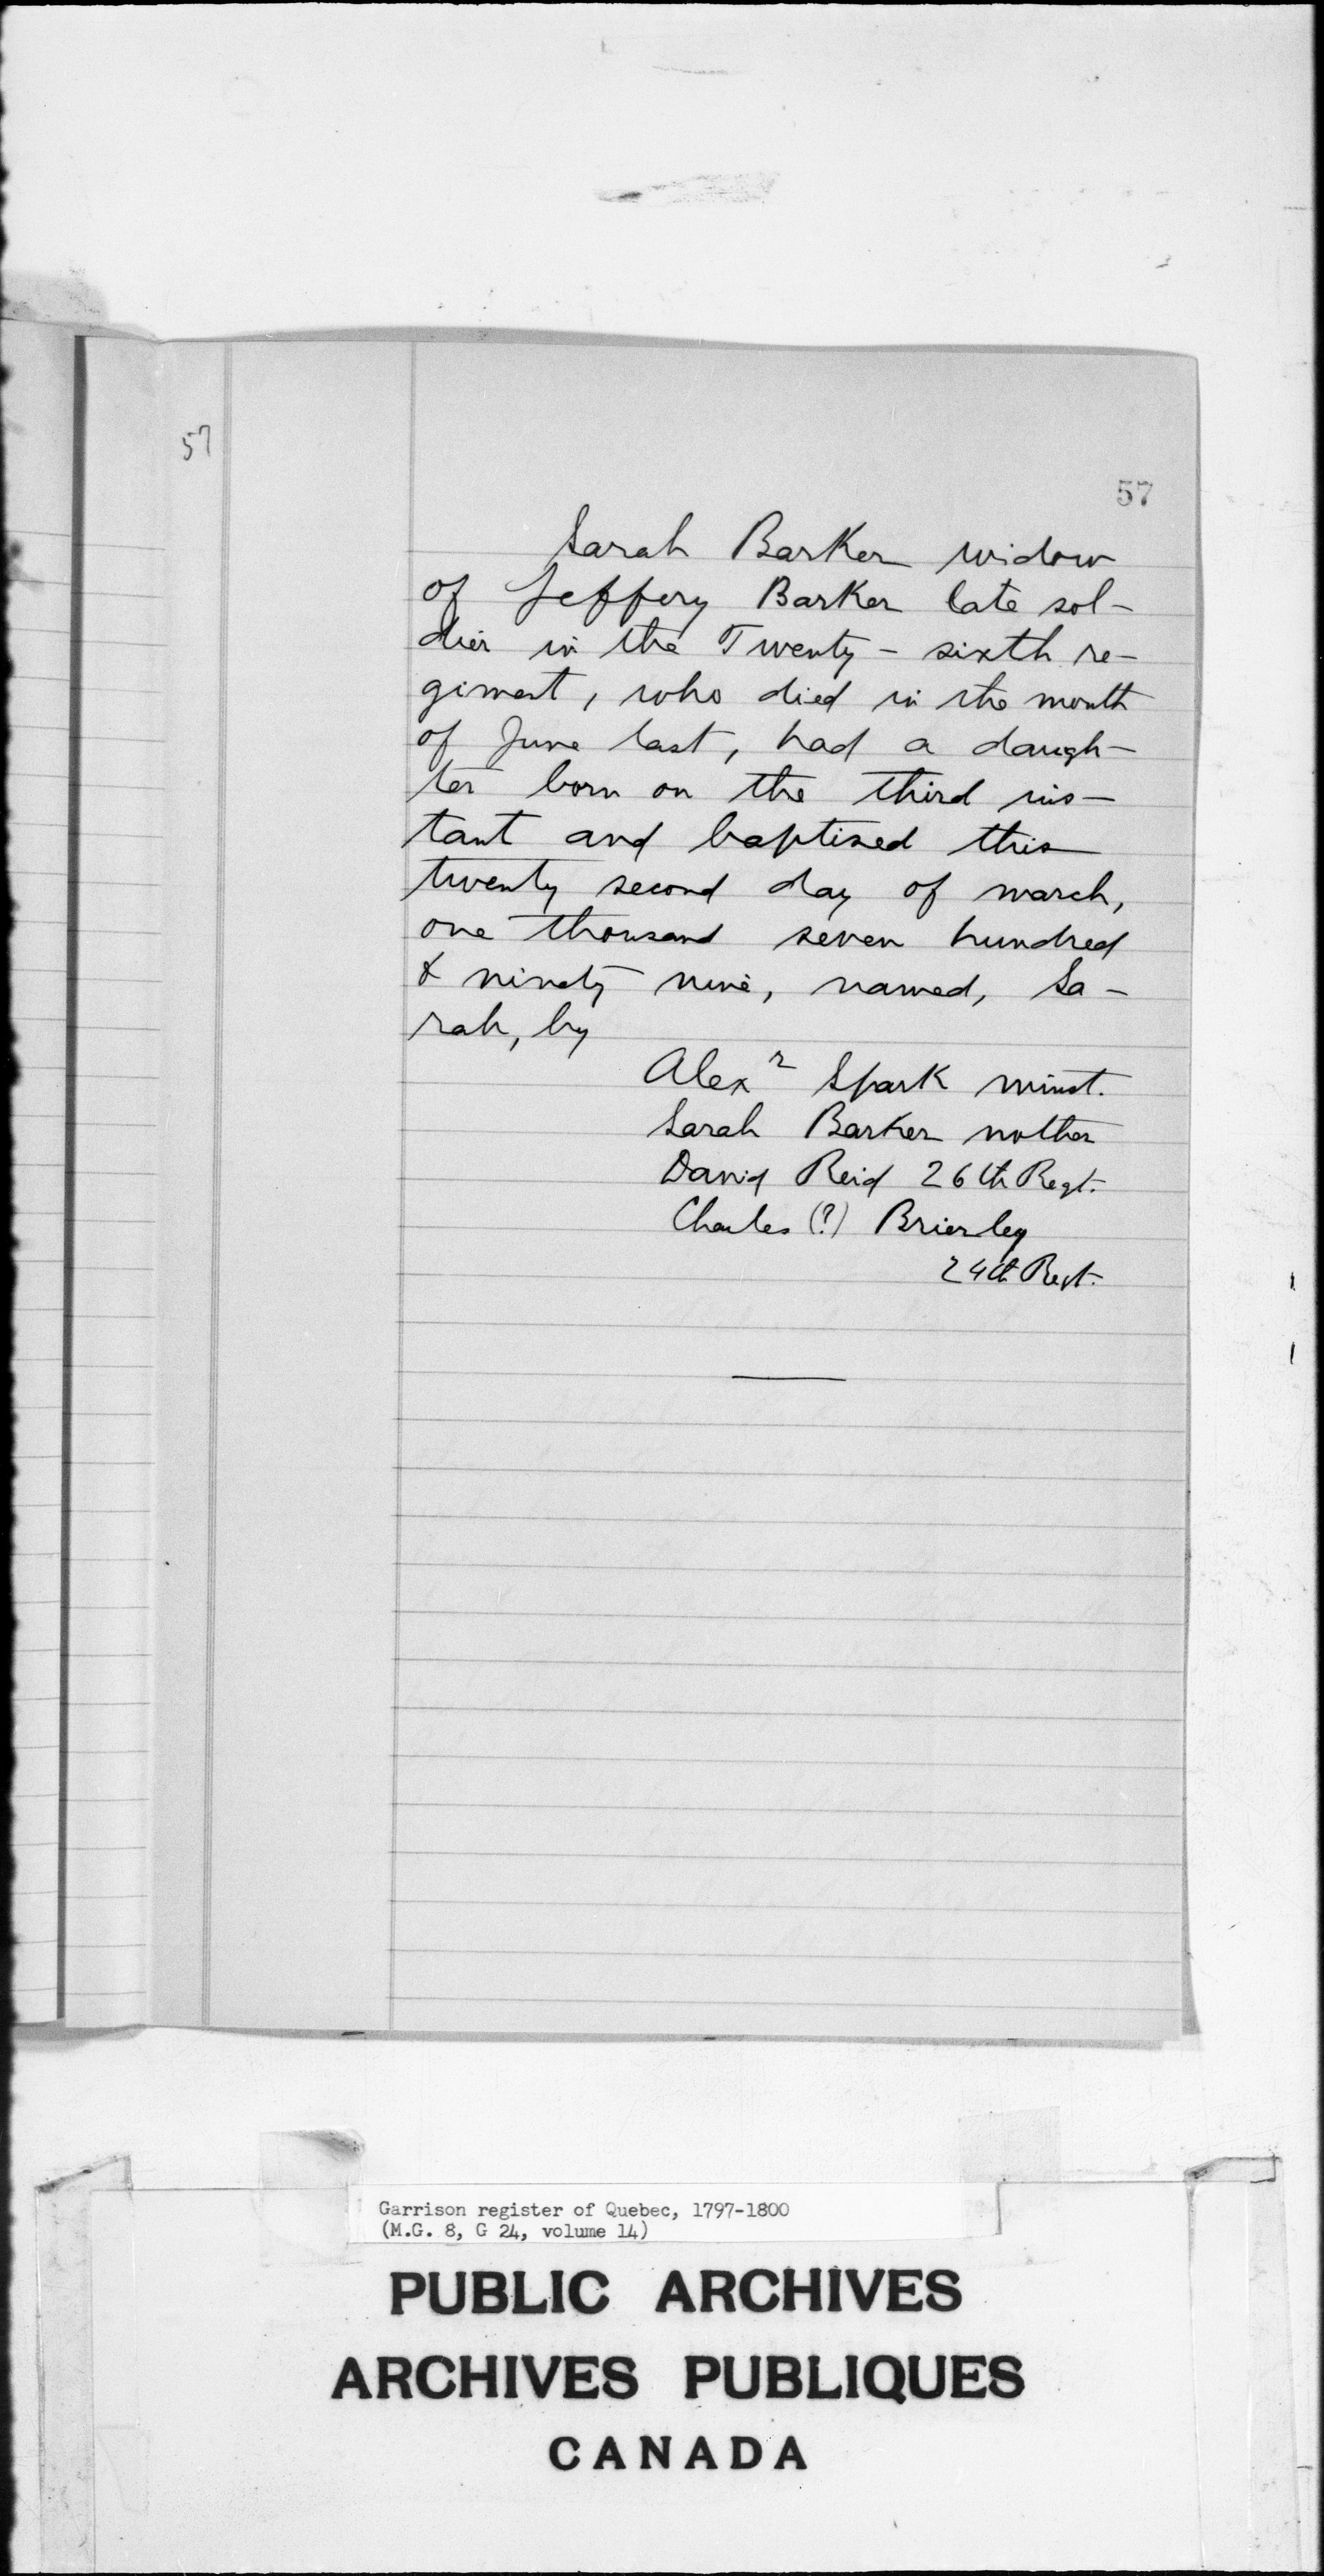 57
57
Sarah Barker widow
of Jeffery Barker late sol-
dier in the Twenty-sixth re-
giment, who died in the month
of June last, had a daugh-
ter born on the third ins-
tant and baptised this
twenty second day of march,
one thousand seven hundred
& ninety nine, named, Sa-
rah, by
Alexr Spark minst.
Sarah Barker mother
David Reid 26th Regt.
Charles (?) Brierley
24th Regt.
Garrison register of Quebec, 1797-1800
(M.G. 8, G 24, volume 14)
PUBLIC ARCHIVES
ARCHIVES PUBLIQUES
CANADA